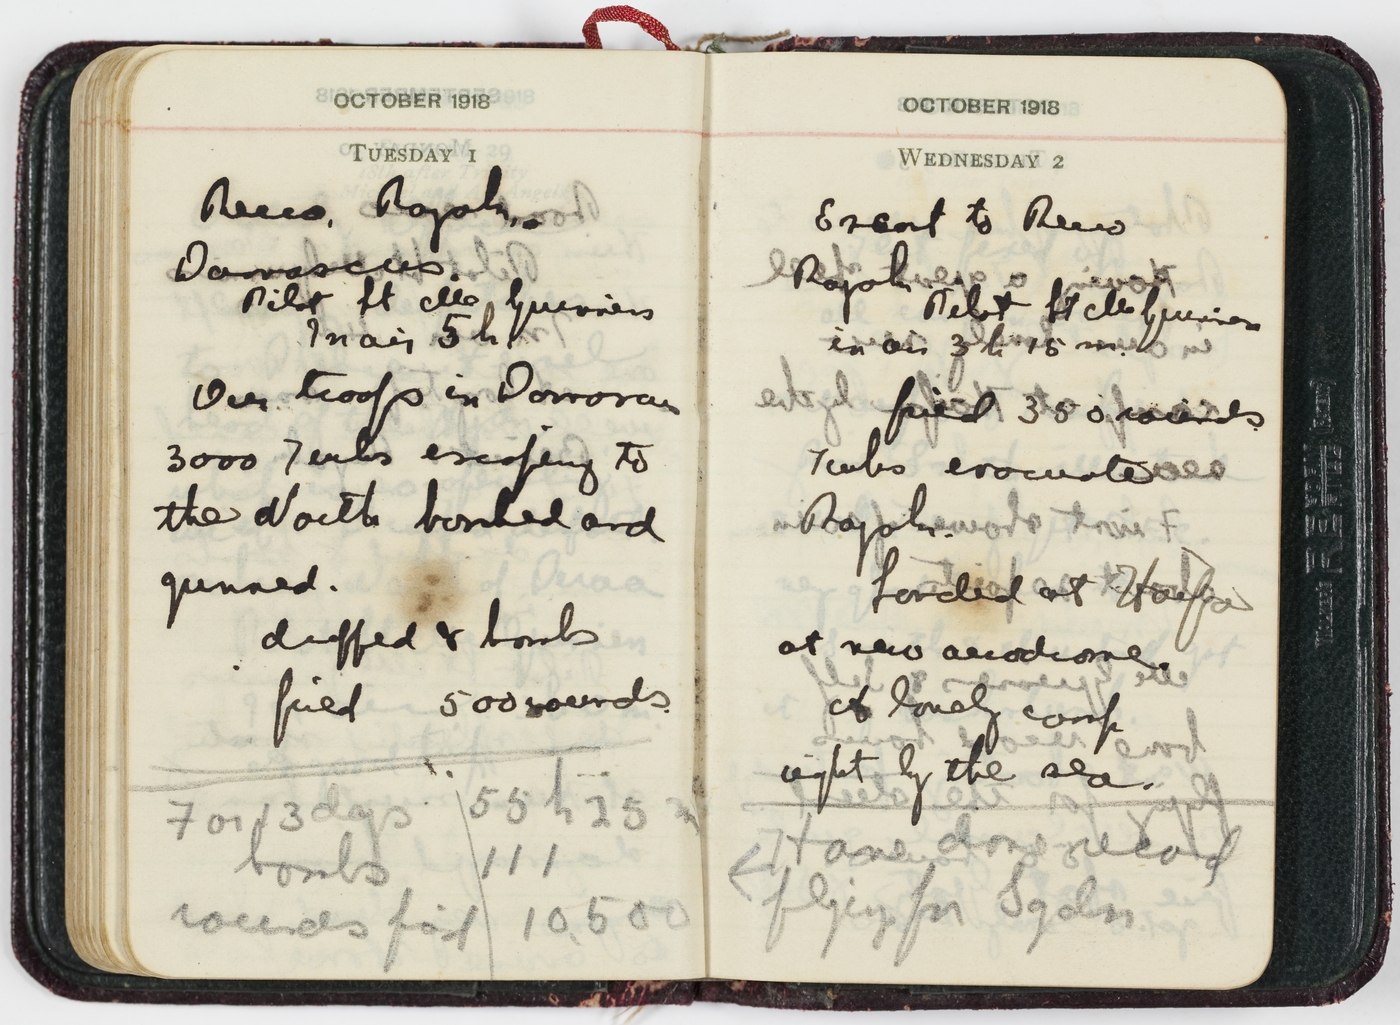 OCTOBER 1918
TUESDAY 1
Recco, Rayak,
Damascus.
Pilot Lt McGuinness
In air 5 h.
Our troops in Damascus
3000 Turks escaping to
the North bombed and
gunned.
dropped 8 bombs
fired 500 rounds.
7 or 13 days 55 h 25 m
bombs 111
rounds fired 10,500
OCTOBER 1918
WEDNESDAY 2
Escort to Recco
Rayak Pilot Lt
in air 3 h 15 m.
fired 350 rounds
Turks evacuate
Rayak.
Landed at Haifa
at new aerodrome.
A lonely camp
right by the sea.
Have done record
flying for Sqdn